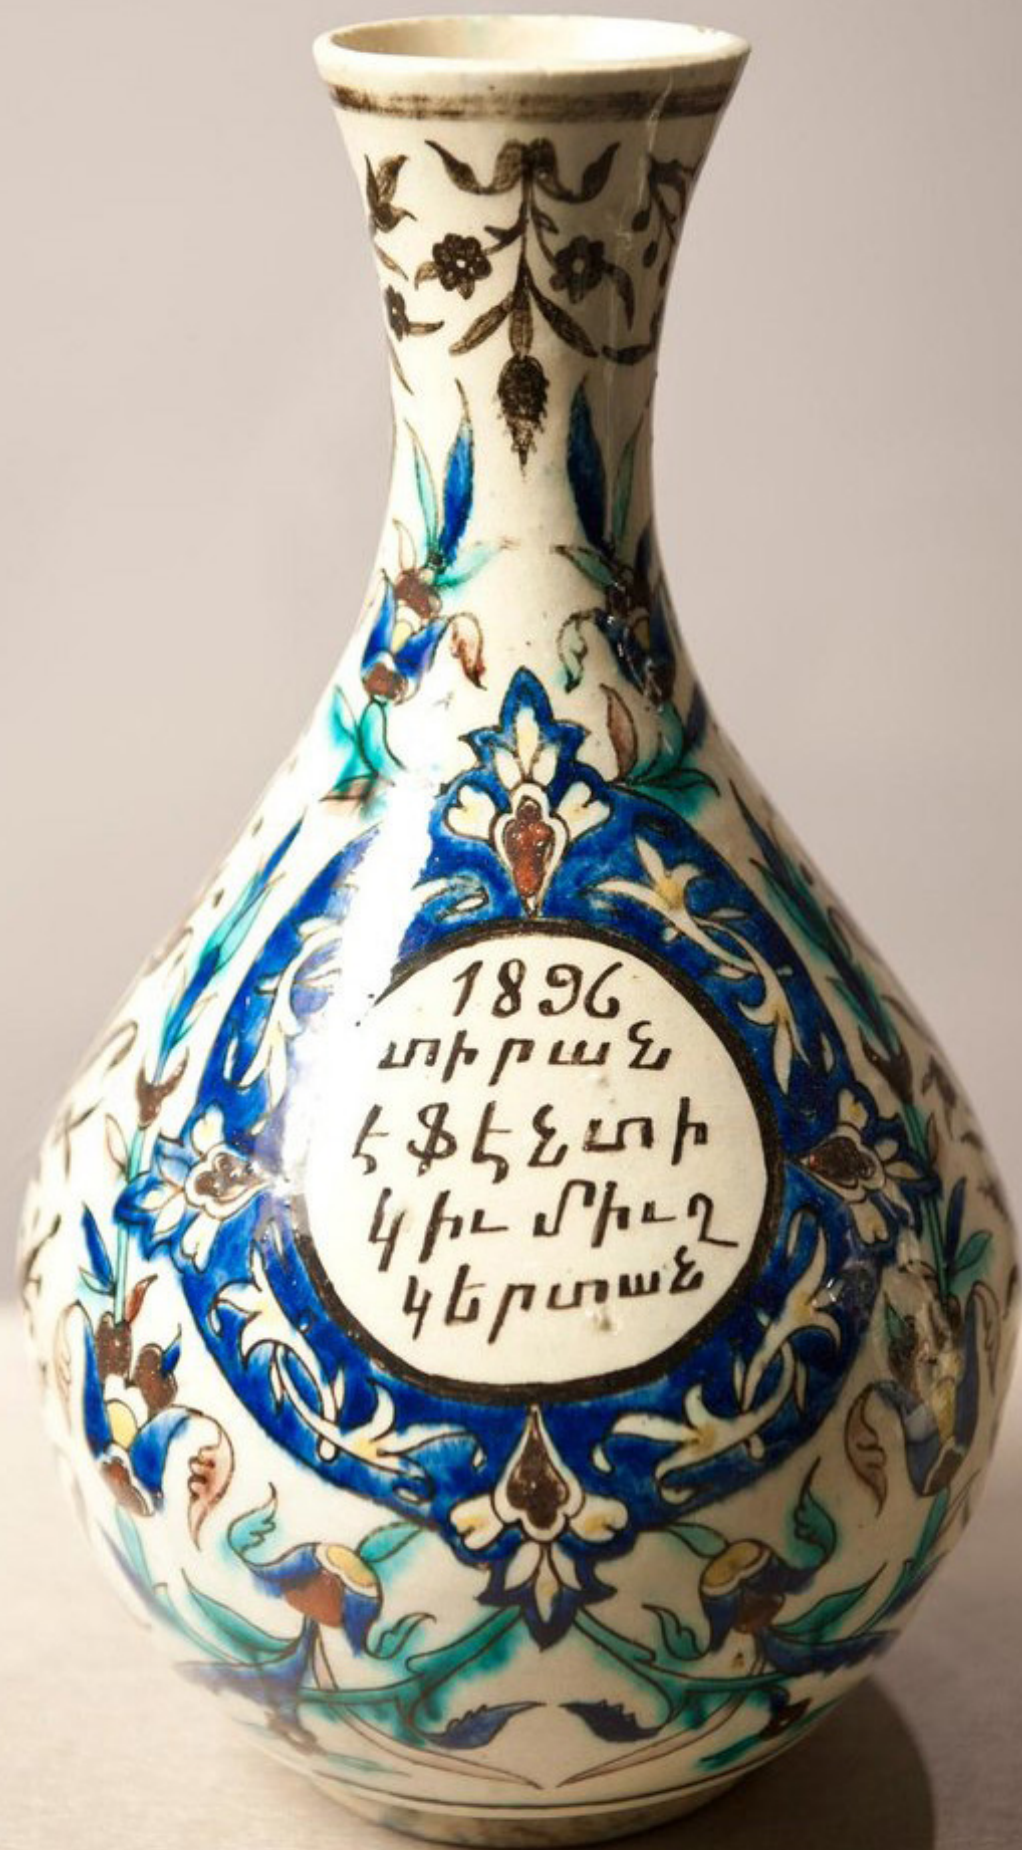 1896
տիրան
էֆէնտի
կիւմիւշ
կերտան